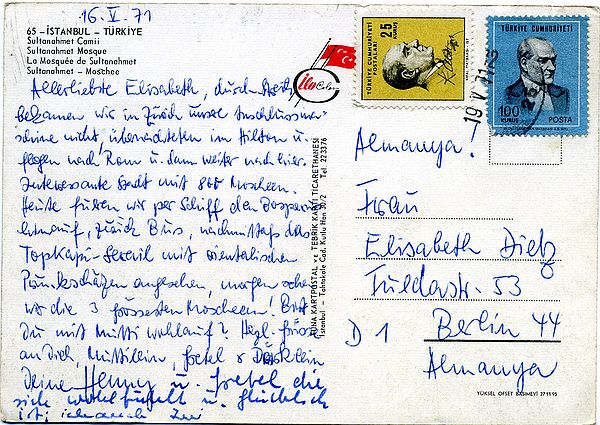 16.V.71
65 - İSTANBUL - TÜRKİYE
Sultanahmet Camii
Sultanahmet Mosque
La Mosquée de Sultanahmet
Sultanahmet - Moschee
Allerliebste Elisabeth, durch
bekamen wir in Zürich unsere Anschlussma-
schine nicht, übernachteten im Hilton u.
flogen nach Rom u. dann weiter nach hier.
Interessante Stadt mit 800 Moscheen.
Heute fuhren wir per Schiff den Bosporus
hinauf, zurück Bus, nachmittags das
Topkapi-Serail mit orientalischen
Prunkschätzen angesehen, morgen sehen
wir die 3 grössten Moscheen! Bist
Du mit Mutti wohlauf? Hzgl. Grüsse
an Dich, Muttilein,
Deine Henny u. Gretel die
sich wohlfühlt u. glücklich
ist; ich auch
ilo Color
TUNA KARTPOSTAL ve TEBRİK KARTI TİCARETHANESİ
İstanbul - Tahtakale Cad. Kutlu Han 30/2 Tel 223376
TÜRKİYE CUMHURİYETİ
POSTALARI
25
KURUŞ
TÜRKİYE CUMHURİYETİ
100
KURUŞ
POSTA
19 V 71
Almanya!
Frau
Elisabeth Dietz
Fuldastr. 53
D 1 Berlin 44
Almanya
YÜKSEL OFSET BASIMEVİ 271195